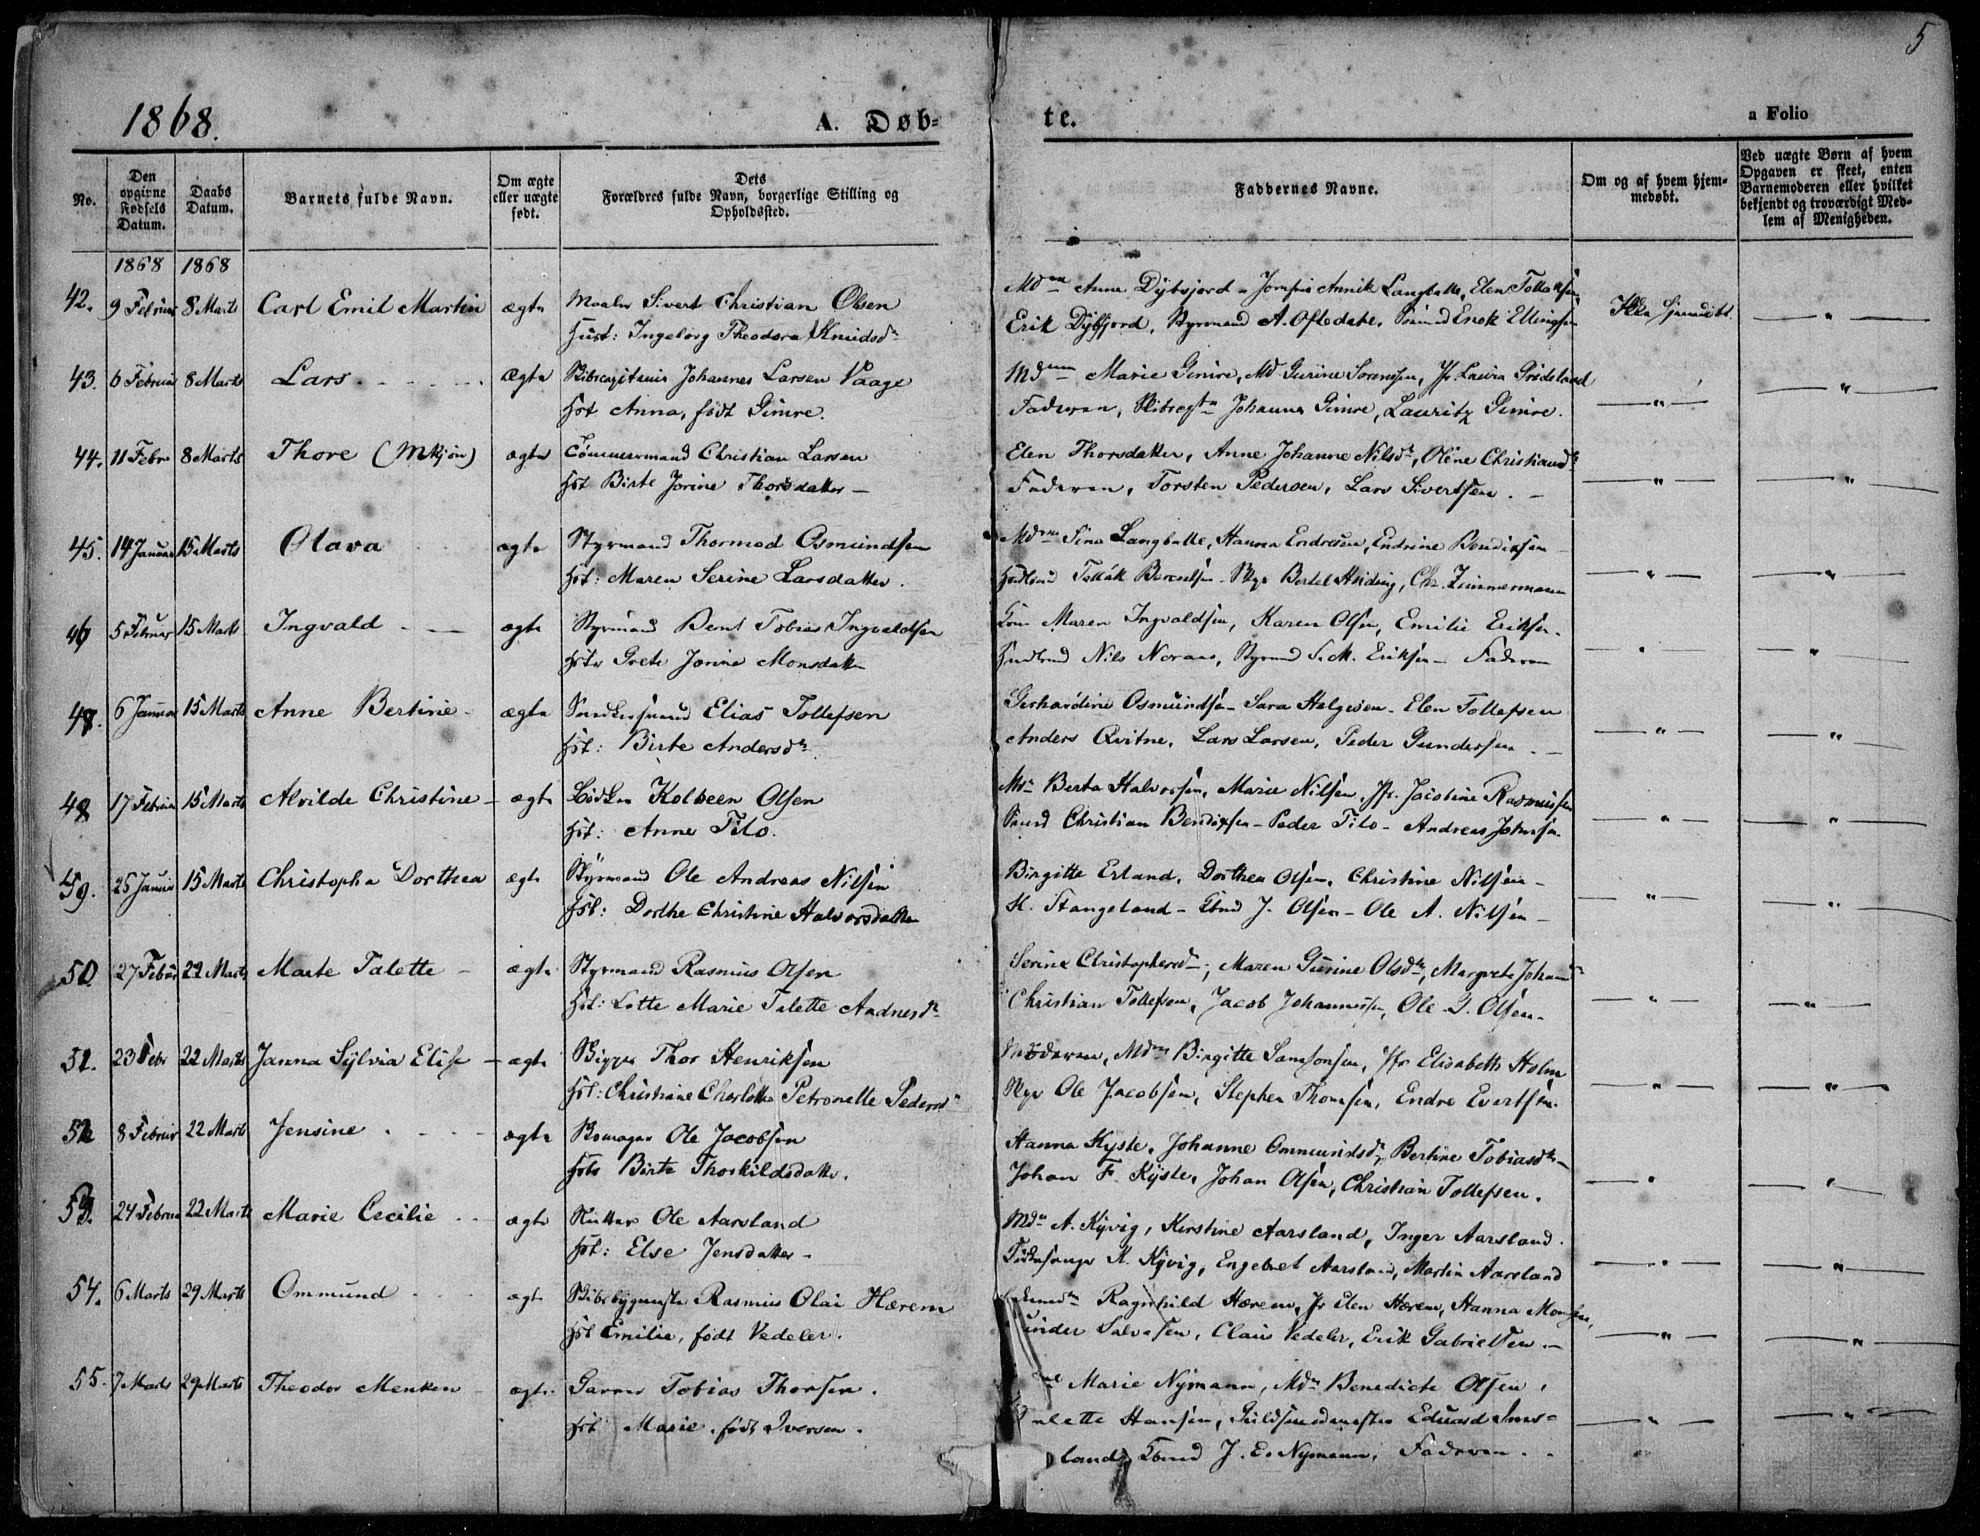 5
1868.
A. Døb-
te.
a Folio
No.
Den opgivne Fødsels Datum.
Daabs Datum.
Barnets fulde Navn.
Om ægte eller uægte født.
Dets Forældres fulde Navn, borgerlige Stilling og Opholdssted.
Faddernes Navne.
Om og af hvem hjemmedøbt.
Ved uægte Børn af hvem Opgaven er skeet, enten Barnemoderen eller hvilket bekjendt og troværdigt Medlem af Menigheden.
1868 1868
42. 9 Februar 8 Marts Carl Emil Martin ægte Maaler Sivert Christian Olsen
Hust: Ingeborg Theodora Knudsdr
Mdm Anna Dybfjord Annik Langballe, Elen Tollaksen
Erik Dybfjord, Styrmand A. Oftedale, Enok Ellingsen
Ikke hjemdøbt — " —
43. 6 Februar 8 Marts Lars ægte Skibscapitain Johannes Larsen Vaage
Hst Anna, født Gimre.
Mdm Marie Gimre, Md Gurine Sorensen, Jfr. Laura Grødeland
Faderen, Johannes Gimre, Lauritz Gimre.
— " — — " —
44. 11 Febr 8 Marts Thore (Mkjøn) ægte Tømmermand Christian Larsen
Hst Birte Jorine Thorsdatter —
Elen Thorsdatter, Anne Johanne Nilsdr, Oline Christiansdr
Faderen, Torsten Pedersen, Lars Sivertsen. —
— " — — " —
45. 14 Januar 15 Marts Olava ægte Styrmand Thormod Osmundsen
Hst: Maren Serine Larsdatter.
Mdm Sina Langballe, Hanna Endresen, Endrine Bendixsen
Tollak Berentsen Bertel Chr. Zimmermann
— " — — " —
46 5 Februar 15 Marts Ingvald ægte Styrmand Bent Tobias Ingvaldsen
Hst Grete Jorine Monsdatter
Maren Ingvaldsen, Karen Olsen, Emilie Eriksen.
Nils Styrmd S. M. Eriksen — Faderen
— " — — " —
47. 6 Januar 15 Marts Anne Bertine ægte Elias Tollefsen
Hst: Birte Andersdr
Gerhardine Osmundsen Sara Helgesen — Elen Tollefsen
Anders Qvitne, Lars Larsen, Peder Gundersen
— " — — " —
48 17 Februar 15 Marts Alvilde Christine — ægte Bødker Kolbeen Olsen
Hst: Anne Tilo.
Mdm Berta Halvorsen, Marie Nilsen, Jfr. Jacobine Rasmussen
Christian Bendixsen — Peder Tilo — Andreas Johnsen
— " — — " —
49. 25 Januar 15 Marts Christopha Dorthea ægte Styrmand Ole Andreas Nilsen
Hst: Dorthe Christine Halvorsdatter
Birgitte Erland, Dorthea Olsen, Christine Nilsen —
H. Stangeland — J. Olsen — Ole A. Nilsen —
— " — — " —
50 27 Februar 22 Marts Marte Talette — ægte Styrmand Rasmus Olsen
Hst: Lotte Marie Talette Andersdr
Serine Christophersdr, Maren Gurine Olsdr, Margrete Johansdr
Christian Tollefsen, Jacob Johannessen, Ole G. Olsen.
— " — — " —
51. 23 Febr 22 Marts Janna Sylvia Elise — ægte Rigger Thor Henriksen
Hst: Christiane Charlotte Petronelle Pedersdr
Moderen, Mdm Birgitte Samsonsen, Jfr Elisabeth Holm
Ole Jacobsen, Stephen Thomsen, Endre Evertsen.
— " — — " —
52 8 Februar 22 Marts Jensine ægte Skomager Ole Jacobsen
Hst Birte Thorkildsdatter.
Hanna Kyste, Johanne Ommundsdr, Bertine Tobiasdr —
Johan F. Kyste, Johan Olsen, Christian Tollefsen.
— " — — " —
53. 24 Februar 22 Marts Marie Cecilie ægte Ole Aarsland
Hst: Else Jensdatter —
Mdm A. Kyvig, Kirstine Aarsland, Inger Aarsland.
K. Kyvig, Engebret Aarsland, Martin Aarsland
— " — — " —
54. 6 Marts 29 Marts Ommund ægte Skibsbygmester Rasmus Olai Hærem
Hst Emilie, født Vedeler.
Ragnhild Hærem, Jfr Elen Hærem, Hanna
Salvesen, Claus Vedeler, Erik Gabrielsen. —
— " — — " —
55. 7 Marts 29 Marts Theodor Menken — ægte Garver Tobias Thorsen.
Hst Marie, født Iversen.
Marie Nymann, Mdm Benedicte Olsen,
Hansen, Guldsmedmester Eduard
land, J. E. Nymann, Faderen.
— " — — " —